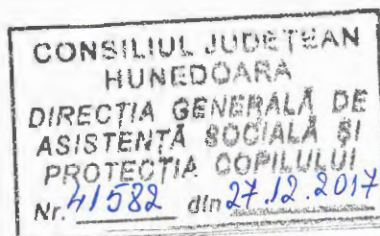 CONSILIUL JUDEȚEAN
HUNEDOARA
DIRECȚIA GENERALĂ DE
ASISTENȚĂ SOCIALĂ ȘI
PROTECȚIA COPILULUI
Nr. 41582 din 27.12.2017